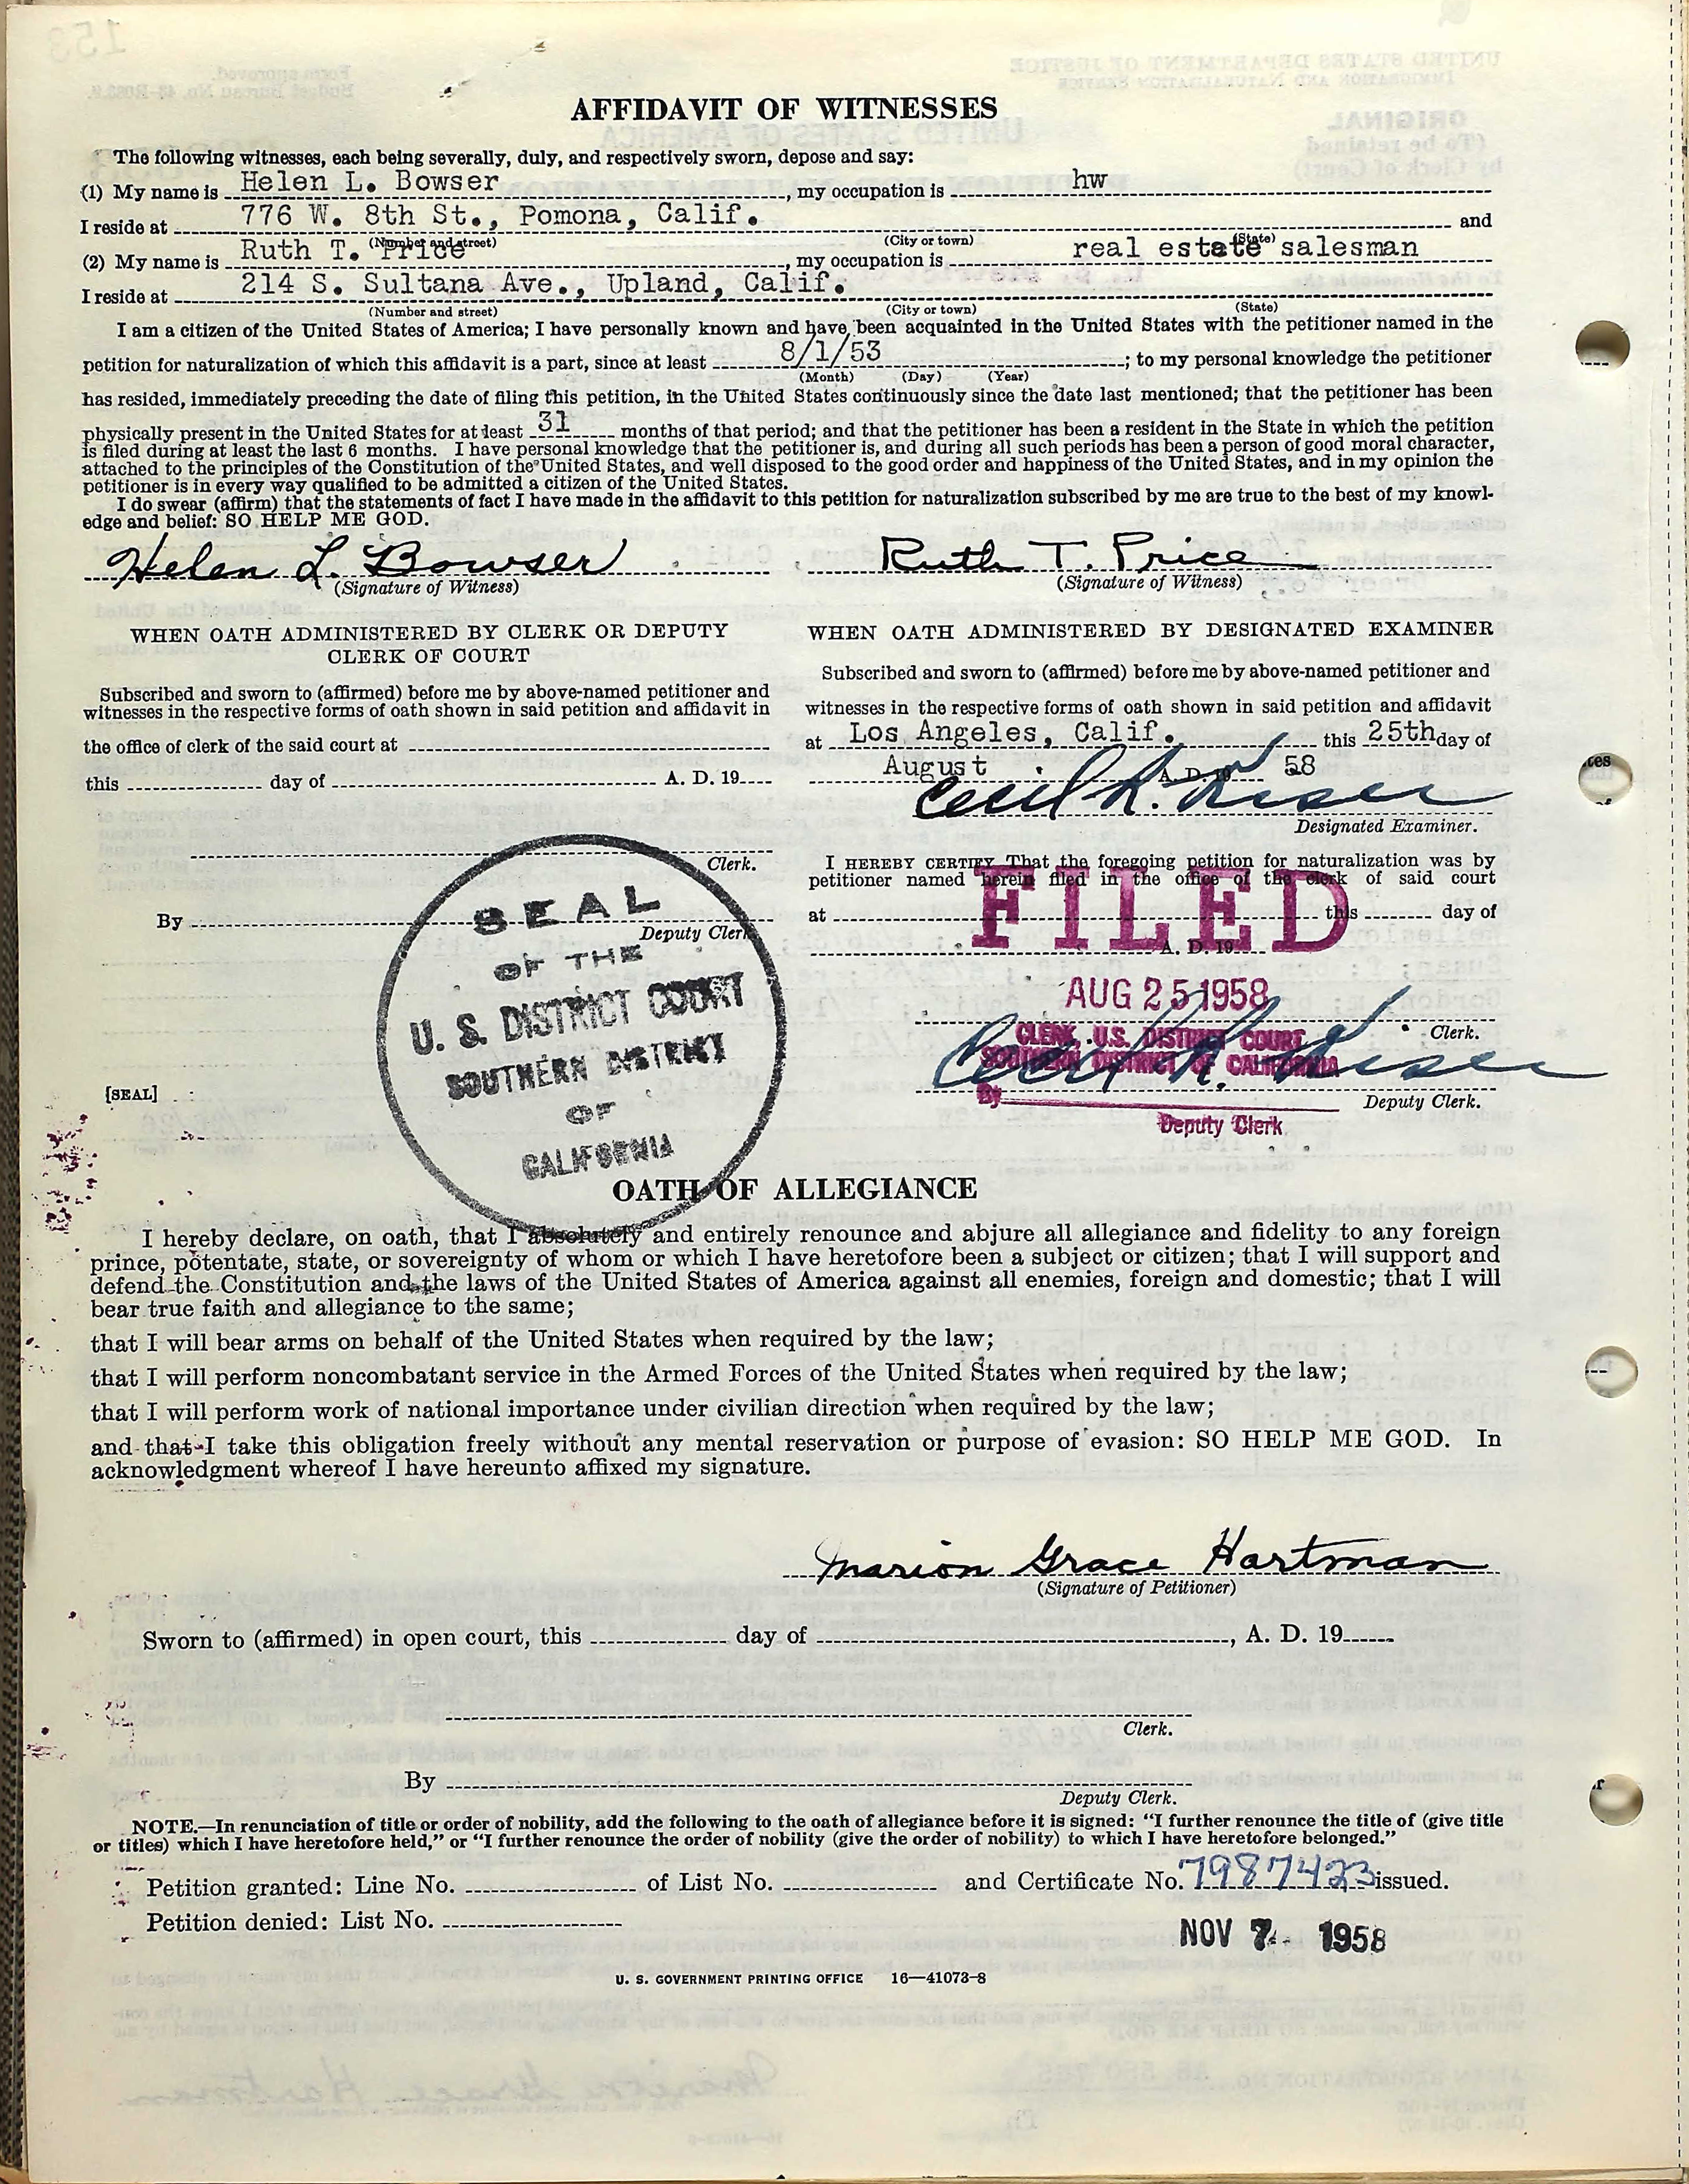 AFFIDAVIT OF WITNESSES
The following witnesses, each being severally, duly, and respectively sworn, depose and say:
(1) My name is Helen L. Bowser, my occupation is hw
I reside at 776 W. 8th St., Pomona, Calif. and
(Number and street) (City or town) (State)
(2) My name is Ruth T. Price, my occupation is real estate salesman
I reside at 214 S. Sultana Ave., Upland, Calif.
(Number and street) (City or town) (State)
I am a citizen of the United States of America; I have personally known and have been acquainted in the United States with the petitioner named in the
petition for naturalization of which this affidavit is a part, since at least 8/1/53; to my personal knowledge the petitioner
(Month) (Day) (Year)
has resided, immediately preceding the date of filing this petition, in the United States continuously since the date last mentioned; that the petitioner has been
physically present in the United States for at least 31 months of that period; and that the petitioner has been a resident in the State in which the petition
is filed during at least the last 6 months. I have personal knowledge that the petitioner is, and during all such periods has been a person of good moral character,
attached to the principles of the Constitution of the United States, and well disposed to the good order and happiness of the United States, and in my opinion the
petitioner is in every way qualified to be admitted a citizen of the United States.
I do swear (affirm) that the statements of fact I have made in the affidavit to this petition for naturalization subscribed by me are true to the best of my knowl-
edge and belief: SO HELP ME GOD.
Helen L. Bowser
(Signature of Witness)
Ruth T. Price
(Signature of Witness)
WHEN OATH ADMINISTERED BY CLERK OR DEPUTY
CLERK OF COURT
Subscribed and sworn to (affirmed) before me by above-named petitioner and
witnesses in the respective forms of oath shown in said petition and affidavit in
the office of clerk of the said court at
this day of A. D. 19
Clerk.
By
Deputy Clerk
[SEAL]
SEAL
OF THE
U. S. DISTRICT COURT
SOUTHERN DISTRICT
OF
CALIFORNIA
WHEN OATH ADMINISTERED BY DESIGNATED EXAMINER
Subscribed and sworn to (affirmed) before me by above-named petitioner and
witnesses in the respective forms of oath shown in said petition and affidavit
at Los Angeles, Calif. this 25th day of
August A. D. 19 58
Cecil R.
Designated Examiner.
I HEREBY CERTIFY That the foregoing petition for naturalization was by
petitioner named herein filed in the office of the clerk of said court
at this day of
A. D. 19
FILED
AUG 25 1958
Clerk.
CLERK, U.S. DISTRICT COURT
SOUTHERN DISTRICT OF CALIFORNIA
Cecil R.
By
Deputy Clerk.
Deputy Clerk
OATH OF ALLEGIANCE
I hereby declare, on oath, that I absolutely and entirely renounce and abjure all allegiance and fidelity to any foreign
prince, potentate, state, or sovereignty of whom or which I have heretofore been a subject or citizen; that I will support and
defend the Constitution and the laws of the United States of America against all enemies, foreign and domestic; that I will
bear true faith and allegiance to the same;
that I will bear arms on behalf of the United States when required by the law;
that I will perform noncombatant service in the Armed Forces of the United States when required by the law;
that I will perform work of national importance under civilian direction when required by the law;
and that I take this obligation freely without any mental reservation or purpose of evasion: SO HELP ME GOD. In
acknowledgment whereof I have hereunto affixed my signature.
Marion Grace Hartman
(Signature of Petitioner)
Sworn to (affirmed) in open court, this day of , A. D. 19
Clerk.
By
Deputy Clerk.
NOTE.—In renunciation of title or order of nobility, add the following to the oath of allegiance before it is signed: "I further renounce the title of (give title
or titles) which I have heretofore held," or "I further renounce the order of nobility (give the order of nobility) to which I have heretofore belonged."
Petition granted: Line No. of List No. and Certificate No. 7987423 issued.
Petition denied: List No.
NOV 7 - 1958
U. S. GOVERNMENT PRINTING OFFICE 16—41073-8